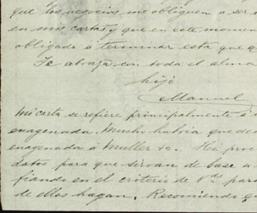 que los negocios me obliguen a ser
en mis cartas y que en este momen
obligado a terminar esta que
Te abraza con toda el alma
hijo
Manuel
mi carta se refiere principalmente á
enagenada. Mucho habria que de
enagenada á Muller &c. He pro
datos para que sirvan de base a
fiando en el criterio de Vms. para
de ellos hagan. Recomiendo